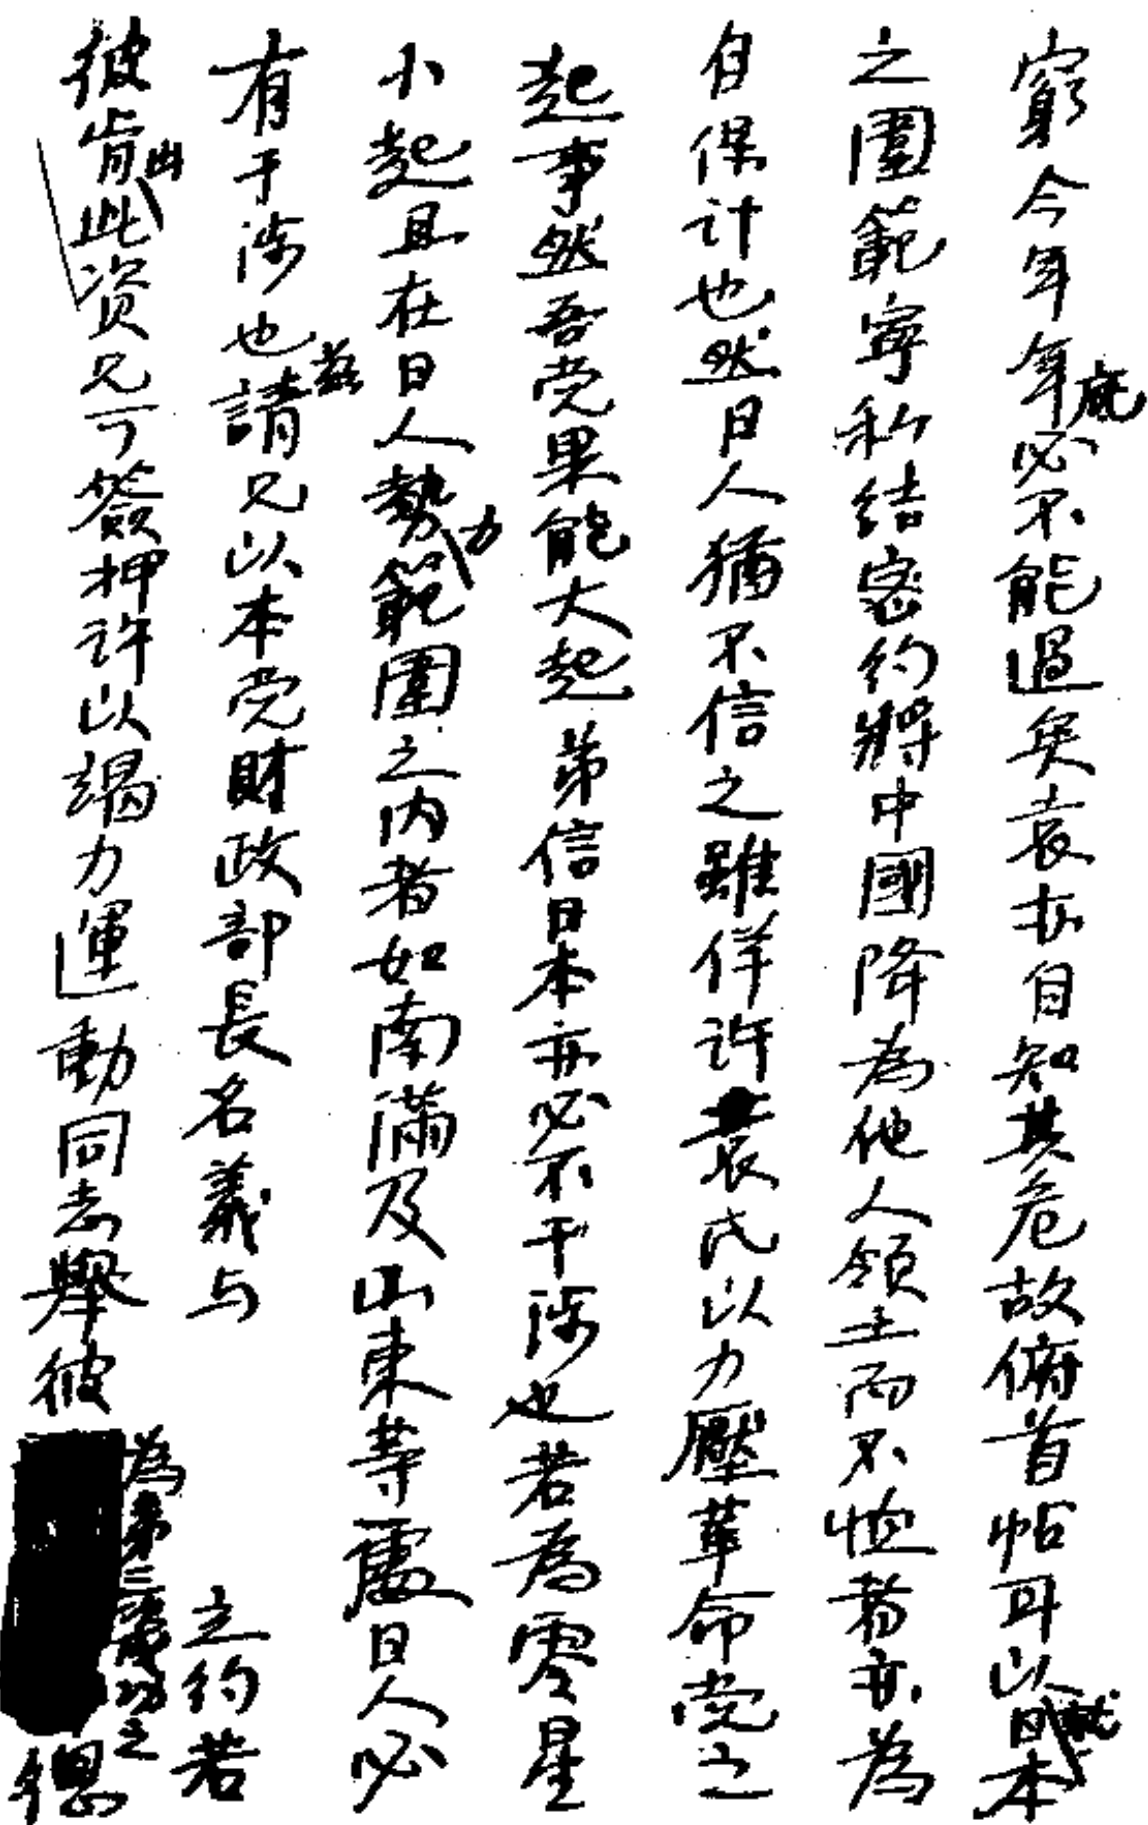 窮今年年底必不能過矣袁亦自知其危故俯首帖耳以就日本
之圍範寧私结密约將中國降為他人領土而不恤者亦為
自保计也然日人猶不信之雖佯许袁氏以力壓革命党之
起事然吾党果能大起弟信日本亦必不干涉也若為零星
小起且在日人勢力範圍之内者如南滿及山東等處日人必
有干涉也兹請兄以本党財政部長名義与 之约若
彼肯出此资兄可簽押许以竭力運動同志舉彼為第三次成功之總